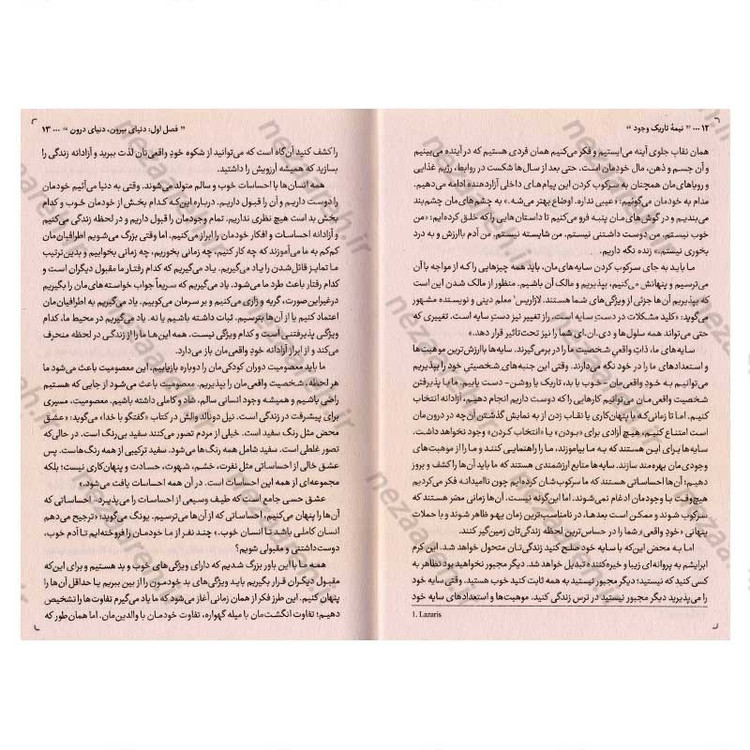 ۱۲ ... " نیمهٔ تاریک وجود "
همان نقاب جلوی آینه می‌ایستیم و فکر می‌کنیم همان فردی هستیم که در آینده می‌بینیم
و آن جسم و ذهن، مال خودمان است. حتی بعد از سال‌ها شکست در روابط، رژیم غذایی
و رویاهای‌مان همچنان به سرکوب کردن این پیام‌های داخلی آزاردهنده ادامه می‌دهیم.
مدام به خودمان می‌گوئیم: «عیبی نداره. اوضاع بهتر می‌شه.» به چشم‌های‌مان چشم‌بند
می‌بندیم و در گوش‌های‌مان پنبه فرو می‌کنیم تا داستان‌هایی را که خلق کرده‌ایم: «من
خوب نیستم. من دوست داشتنی نیستم. من شایسته نیستم. من آدم باارزش و به درد
بخوری نیستم.» زنده نگه داریم.
ما باید به جای سرکوب کردن سایه‌های‌مان، باید همه چیزهایی را که از مواجه با آن
می‌ترسیم و پنهانش می‌کنیم، بپذیریم و مالک آن باشیم. منظور از مالک شدن این است
که بپذیریم آن‌ها جزئی از ویژگی‌های شما هستند. لازاریس۱ معلم دینی و نویسنده مشهور
می‌گوید: «کلید مشکلات در دستِ سایه است. راز تغییر نیز دست سایه است. تغییری که
حتی می‌تواند همه سلول‌ها و دی.ان.ای شما را نیز تحت‌تأثیر قرار دهد.»
سایه‌های ما، ذات واقعی شخصیت ما را در برمی‌گیرند. سایه‌ها باارزش‌ترین موهبت‌ها
و استعدادهای ما را در خود نگه می‌دارند. وقتی این جنبه‌های شخصیتی خود را بپذیریم
می‌توانیم به خودِ واقعی‌مان - خوب یا بد، تاریک یا روشن - دست یابیم. ما با پذیرفتن
شخصیت واقعی‌مان می‌توانیم کارهایی را که دوست داریم انجام دهیم، آزادانه انتخاب
کنیم. اما تا زمانی‌که با پنهان‌کاری یا نقاب زدن از به نمایش گذشتن آن‌چه در درون‌مان
است امتناع کنیم، هیچ آزادی برای «بودن» یا «انتخاب کردن» وجود نخواهد داشت.
سایه‌ها برای این هستند که به ما بیاموزند، ما را راهنمایی کنند و ما را از موهبت‌های
وجودی‌مان بهره‌مند سازند. سایه‌ها منابع ارزشمندی هستند که ما باید آن‌ها را کشف و بروز
دهیم؛ آن‌ها احساساتی هستند که ما سرکوب‌شان کرده‌ایم چون ناامیدانه فکر می‌کردیم
هیچ‌وقت با وجودمان ادغام نمی‌شوند. اما این‌گونه نیست. آن‌ها زمانی مضر هستند که
سرکوب شوند و ممکن است بعدها، در نامناسب‌ترین زمان یهو ظاهر شوند و با حملات
پنهانی «خودِ واقعی» شما را در حساس‌ترین لحظه زندگی‌تان زمین‌گیر کنند.
اما به محض این‌که با سایه خود صلح کنید زندگی‌تان متحول خواهد شد. این کرم
ابریشم به پروانه‌ای زیبا و خیره‌کننده تبدیل خواهد شد. دیگر مجبور نخواهید بود تظاهر به
کسی کنید که نیستید؛ دیگر مجبور نیستید به همه ثابت کنید خوب هستید. وقتی سایه خود
را می‌پذیرید دیگر مجبور نیستید در ترس زندگی کنید. موهبت‌ها و استعدادهای سایه خود
1. Lazaris
" فصل اول: دنیای بیرون، دنیای درون " ... ۱۳
را کشف کنید آن‌گاه است که می‌توانید از شکوه خودِ واقعی‌تان لذت ببرید و آزادانه زندگی را
بسازید که همیشه آرزویش را داشتید.
همه انسان‌ها با احساسات خوب و سالم متولد می‌شوند. وقتی به دنیا می‌آئیم خودمان
را دوست داریم و آن را قبول داریم. درباره این‌که کدام بخش از خودمان خوب و کدام
بخش بد است هیچ نظری نداریم. تمام وجودمان را قبول داریم و در لحظه زندگی می‌کنیم
و آزادانه احساسات و افکار خودمان را ابراز می‌کنیم. اما وقتی بزرگ می‌شویم اطرافیان‌مان
کم‌کم به ما می‌آموزند که چه کار کنیم، چه زمانی بخوریم، چه زمانی بخوابیم و بدین‌ترتیب
ما تمایز قائل‌شدن را یاد می‌گیریم. یاد می‌گیریم که کدام رفتار ما مقبول دیگران است و
کدام رفتار باعث طرد ما می‌شود. یاد می‌گیریم که سریعاً جواب خواسته‌های مان را بگیریم
درغیراین‌صورت، گریه و زاری می‌کنیم و بر سرمان می‌کوبیم. یاد می‌گیریم به اطرافیان‌مان
اعتماد کنیم یا از آن‌ها بترسیم. ثبات داشته باشیم یا نه. یاد می‌گیریم در محیط ما، کدام
ویژگی پذیرفتنی است و کدام ویژگی نیست. همه این‌ها ما را از زندگی در لحظه منحرف
می‌کند و از ابراز آزادانه خودِ واقعی‌مان باز می‌دارد.
ما باید معصومیت دوران کودکی‌مان را دوباره بازیابیم. این معصومیت باعث می‌شود ما
هر لحظه، شخصیت واقعی‌مان را بپذیریم. معصومیت باعث می‌شود از جایی که هستیم
راضی باشیم و همیشه وجود انسانی سالم، شاد و کاملی داشته باشیم. معصومیت، مسیری
برای پیشرفت در زندگی است. نیل دونالد والش در کتاب «گفتگو با خدا» می‌گوید: «عشق
محض مثل رنگ سفید است. خیلی از مردم تصور می‌کنند سفید بی‌رنگ است. در حالی‌که
تصور غلطی است. سفید شامل همه رنگ‌ها می‌شود. سفید ترکیبی از همه رنگ‌هاست. پس
عشق خالی از احساساتی مثل نفرت، خشم، شهوت، حسادت و پنهان‌کاری نیست؛ بلکه
مجموعه‌ای از همه این احساسات است. در آن همه احساسات یافت می‌شود.»
عشق حسی جامع است که طیف وسیعی از احساسات را می‌پذیرد. احساساتی که
آن‌ها را پنهان می‌کنیم، احساساتی که از آن‌ها می‌ترسیم. یونگ می‌گوید: «ترجیح می‌دهم
انسان کاملی باشد تا انسان خوب.» چند نفر از ما خودمان را فروخته‌ایم تا آدم خوب،
دوست‌داشتنی و مقبولی شویم؟
همه ما با این باور بزرگ شدیم که دارای ویژگی‌های خوب و بد هستیم و برای این‌که
مقبول دیگران قرار بگیریم باید ویژگی‌های بد خودمون را از بین ببریم یا حداقل آن‌ها را
پنهان کنیم. این طرز فکر از همان زمانی آغاز می‌شود که ما یاد می‌گیرم تفاوت‌ها را تشخیص
دهیم؛ تفاوت انگشت‌مان با میله گهواره، تفاوت خودمان با والدین‌مان. اما همان‌طور که
nezaareh.ir